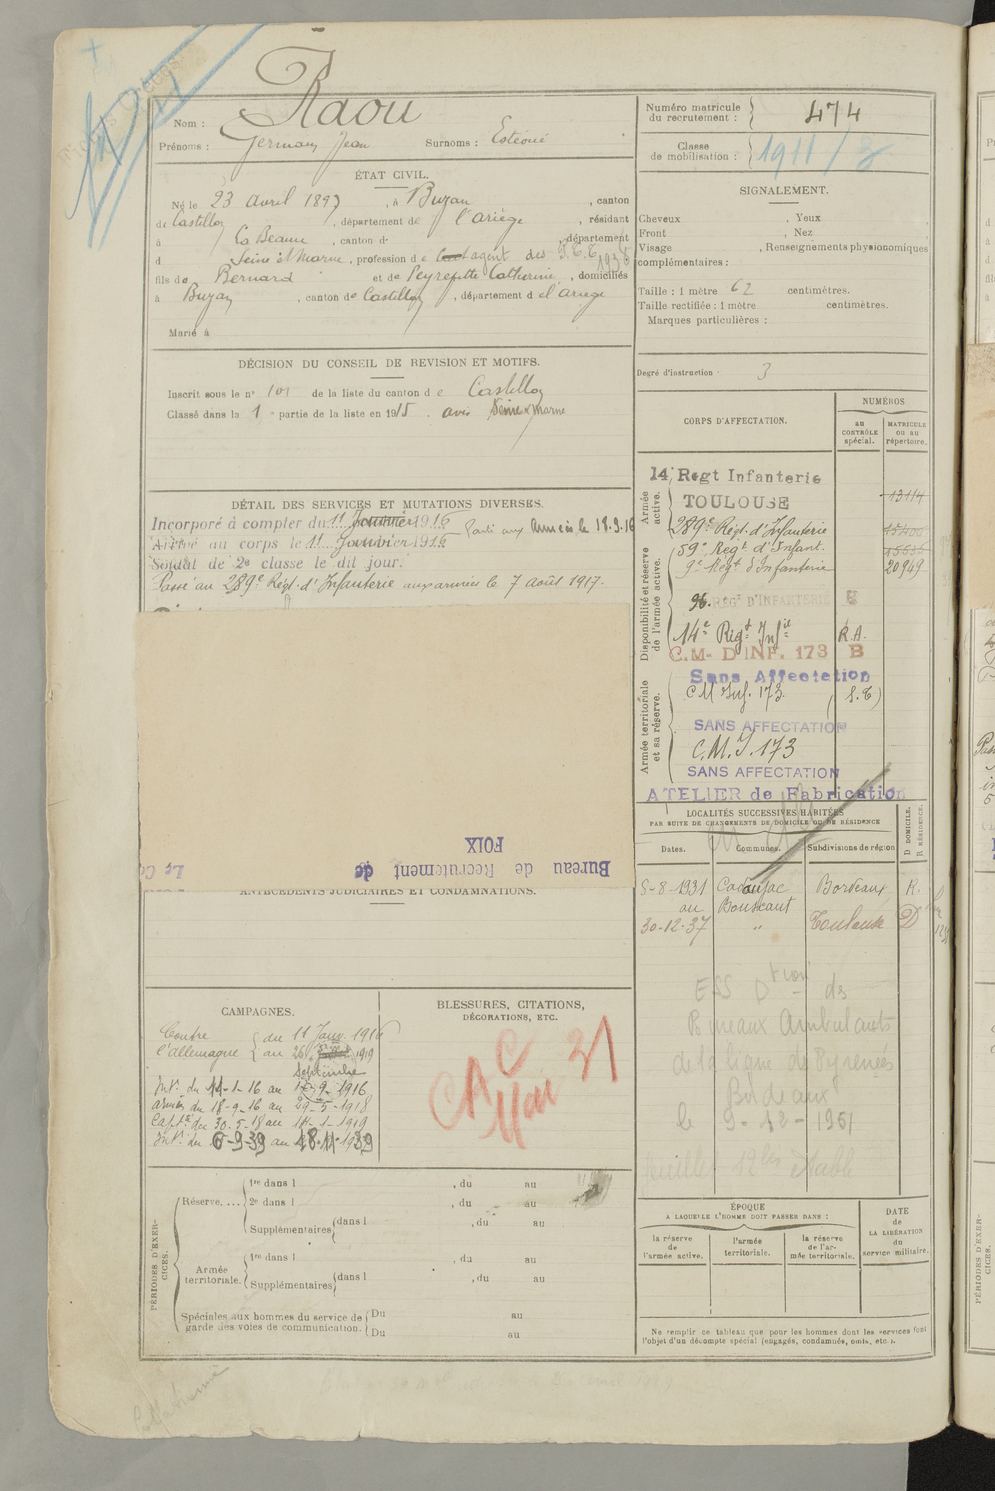 Nom : Raou
Prénoms : Germain Jean Surnoms : Estéoué
Numéro matricule du recrutement : 474
Classe de mobilisation : 1911/3
ÉTAT CIVIL.
Né le 23 avril 1897, à Buzan, canton
de Castillon, département de l'Ariège, résidant
à La Beaume, canton d , département
d Seine et Marne, profession de agent des P.T.T. 1936
fils de Bernard et de Peyrefitte Catherine, domiciliés
à Buzan, canton de Castillon, département d el'ariege
Marié à
SIGNALEMENT.
Cheveux , Yeux
Front , Nez
Visage , Renseignements physionomiques
complémentaires :
Taille : 1 mètre 62 centimètres.
Taille rectifiée : 1 mètre centimètres.
Marques particulières :
Degré d'instruction 3
DÉCISION DU CONSEIL DE REVISION ET MOTIFS.
Inscrit sous le n° 101 de la liste du canton d e Castillon
Classé dans la 1 e partie de la liste en 1915. avis Seine & Marne
DÉTAIL DES SERVICES ET MUTATIONS DIVERSES.
Incorporé à compter du 11 Janvier 1916 Parti aux Armées le 18.9.16
Arrivé au corps le 11 Janvier 1916
Soldat de 2e classe le dit jour.
Passé au 289e Régt d'Infanterie aux armées le 7 août 1917.
Bureau de Recrutement de
FOIX
Le Co
CORPS D'AFFECTATION.
NUMÉROS
au CONTRÔLE spécial.
MATRICULE ou au répertoire.
Armée active.
14 Regt Infanterie
TOULOUSE 13114
289e Régt. d'Infanterie 15400
Disponibilité et réserve de l'armée active.
59e Regt d'Infant. 15635
9e Regt d'Infanterie 20949
96. REGt D'INFANTERIE
14e Régt Infie R.A.
C.M. D'INF. 173 B
Armée territoriale et sa réserve.
Sans Affectation
CM Inf. 173 (S.T.)
SANS AFFECTATION
C.M.I. 173
SANS AFFECTATION
ATELIER de Fabrication
LOCALITÉS SUCCESSIVES HABITÉES
PAR SUITE DE CHANGEMENTS DE DOMICILE OU DE RÉSIDENCE
Dates. Communes. Subdivisions de région D DOMICILE. R RÉSIDENCE.
5-8-1931 Cadaujac Bordeaux R.
au Bouscaut
30-12-37 " Toulouse D
ESS Dtion de
Bureaux Ambulants
de la ligne de Pyrenées
Bordeaux
le 9-12-1951
ANTÉCÉDENTS JUDICIAIRES ET CONDAMNATIONS.
CAMPAGNES.
Contre du 11 Janv. 1916
l'allemagne au 26 1919
Septembre
Intr. du 11-1-16 au 17-9-1916
armées du 18-9-16 au 29-5-1918
Capté du 30-5-18 au 11-1-1919
Intr. du 6-9-39 au 18.11.1939
BLESSURES, CITATIONS,
DÉCORATIONS, ETC.
CAC
Mai 31
PÉRIODES D'EXERCICES.
Réserve....
1re dans l , du au
2e dans l , du au
Supplémentaires dans l , du au
Armée territoriale.
1re dans l , du au
Supplémentaires dans l , du au
Spéciales aux hommes du service de garde des voies de communication.
Du au
Du au
ÉPOQUE
A LAQUELLE L'HOMME DOIT PASSER DANS :
la réserve de l'armée active.
l'armée territoriale.
la réserve de l'armée territoriale.
DATE de LA LIBÉRATION du service militaire.
Ne remplir ce tableau que pour les hommes dont les services font
l'objet d'un décompte spécial (engagés, condamnés, omis, etc.).